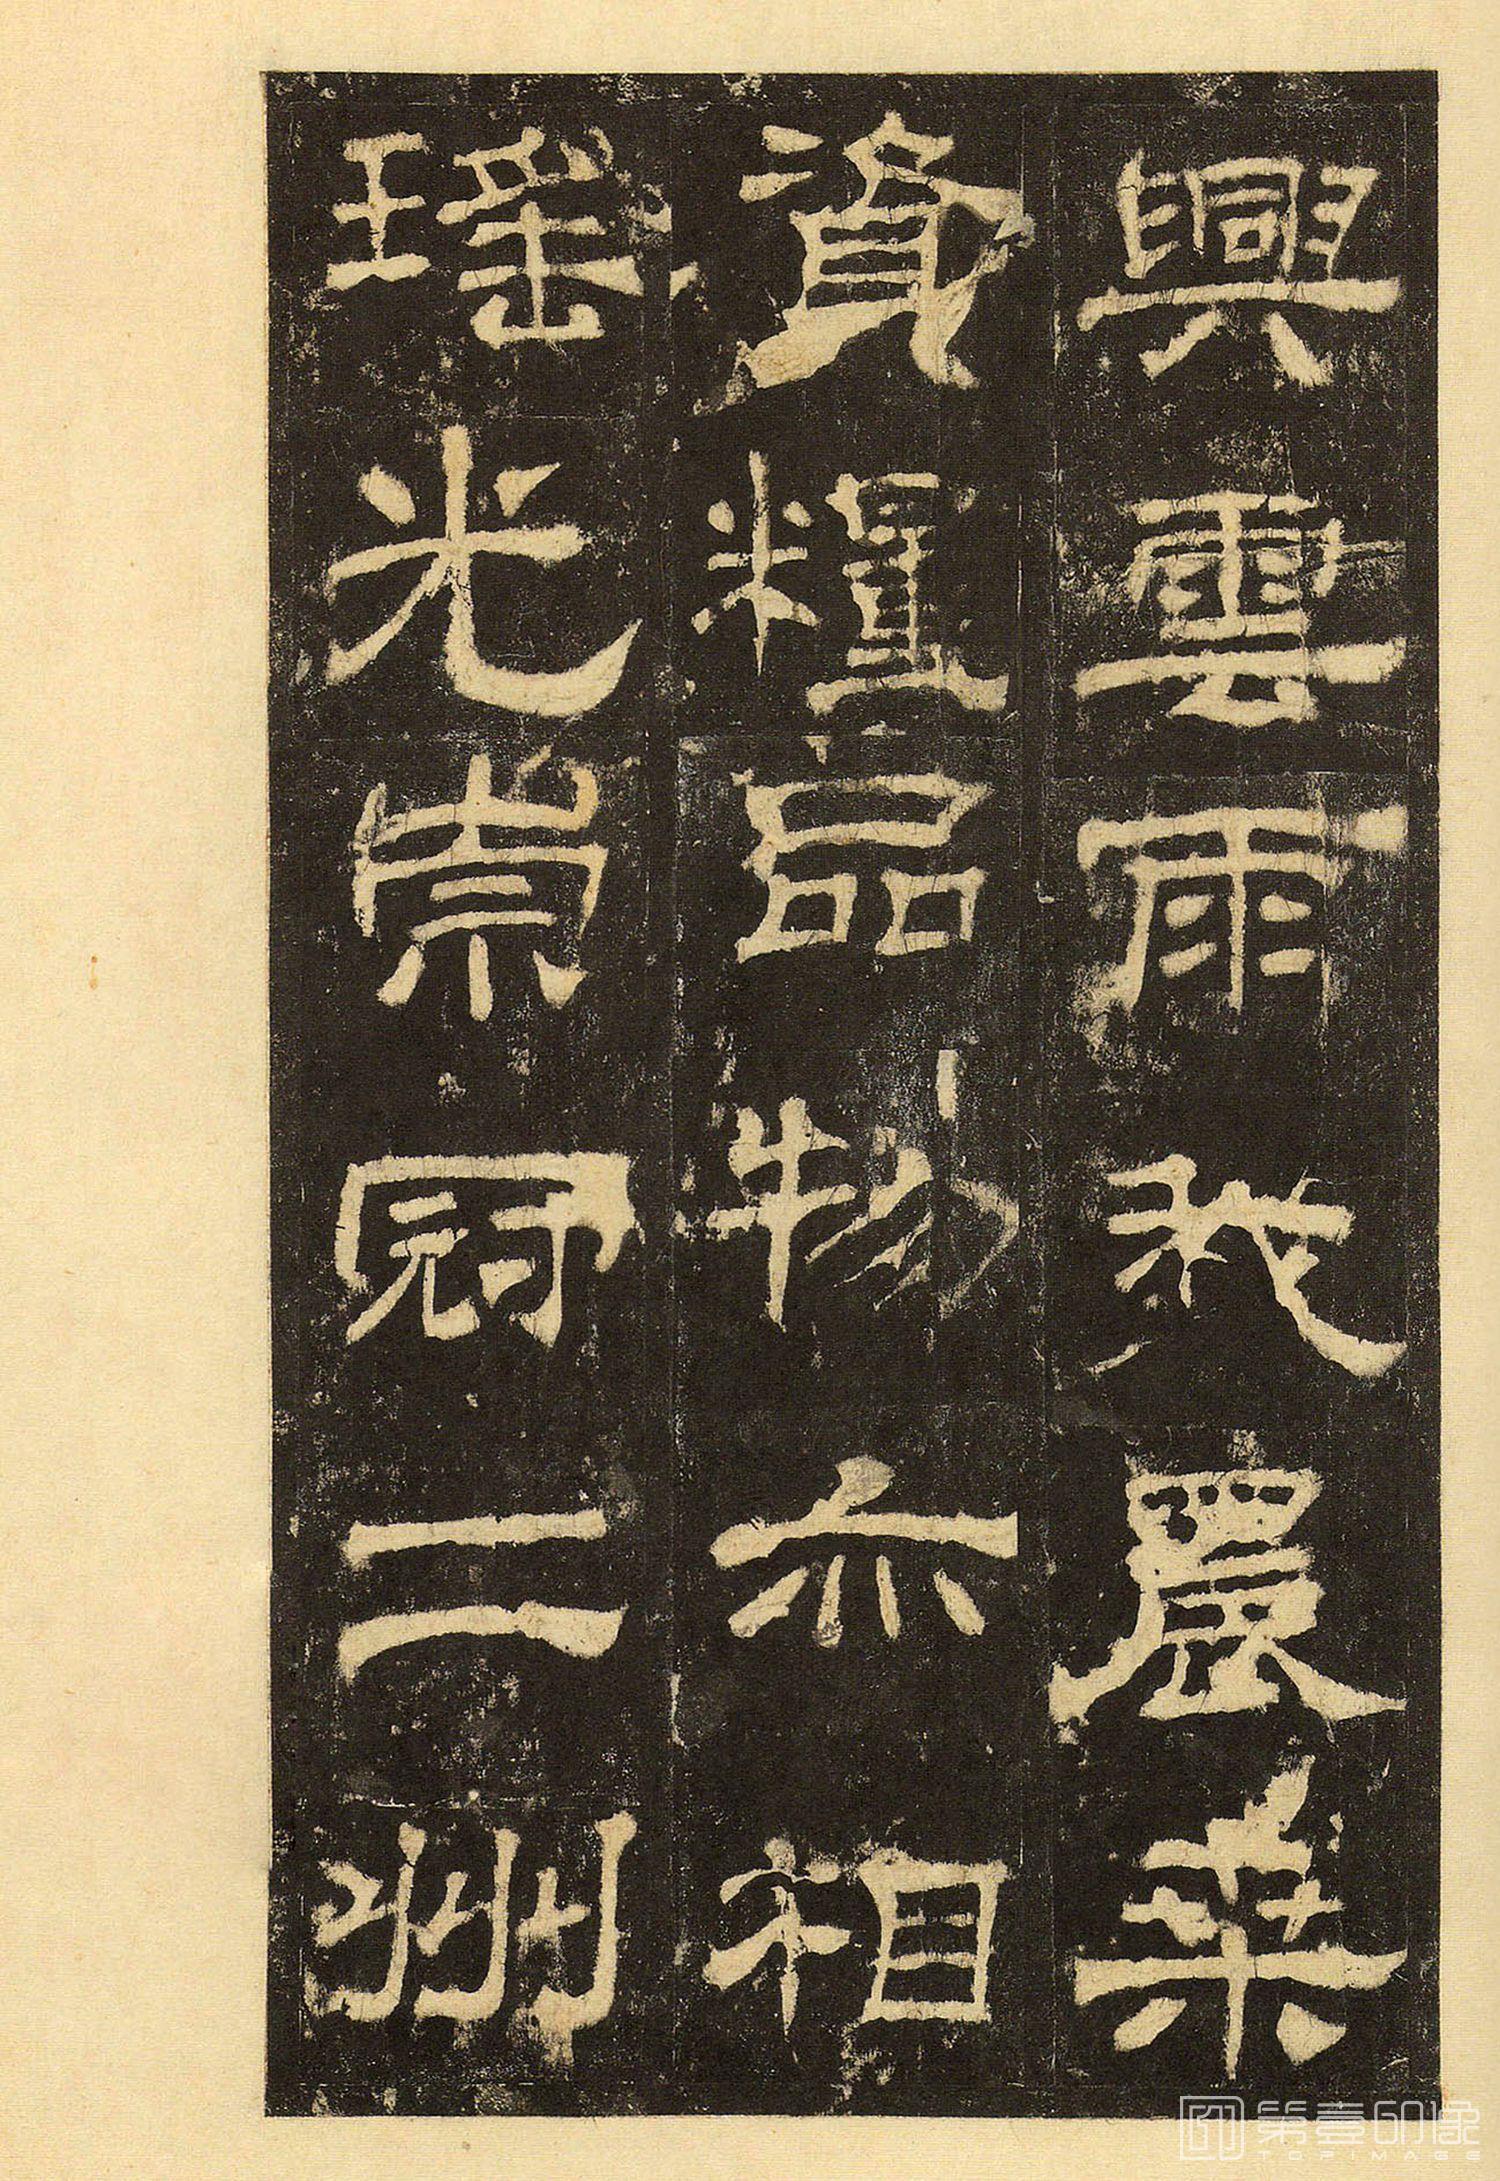 興雲雨我農桑
資糧品物亦相
瑶光崇冠二州
第壹印像
TOPIMAGE